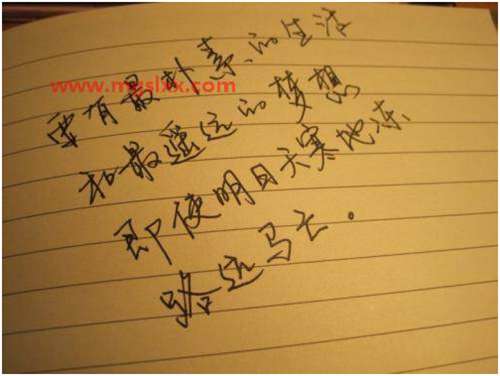 要有最朴素的生活
www.mgslxx.com
和最遥远的梦想
即使明日天寒地冻
路远马亡.